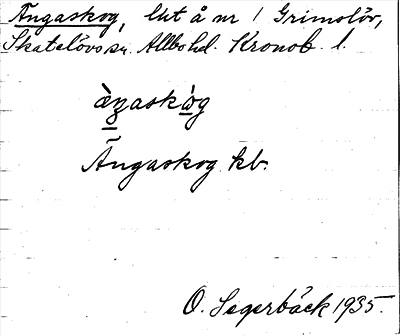 Ängaskog, lkt å nr 1 Grimslöv,
Skatelövs sn. Allbo hd. Kronob. l.
ä̀ŋaskòg
Ängaskog kb.
O. Segerbäck 1935.